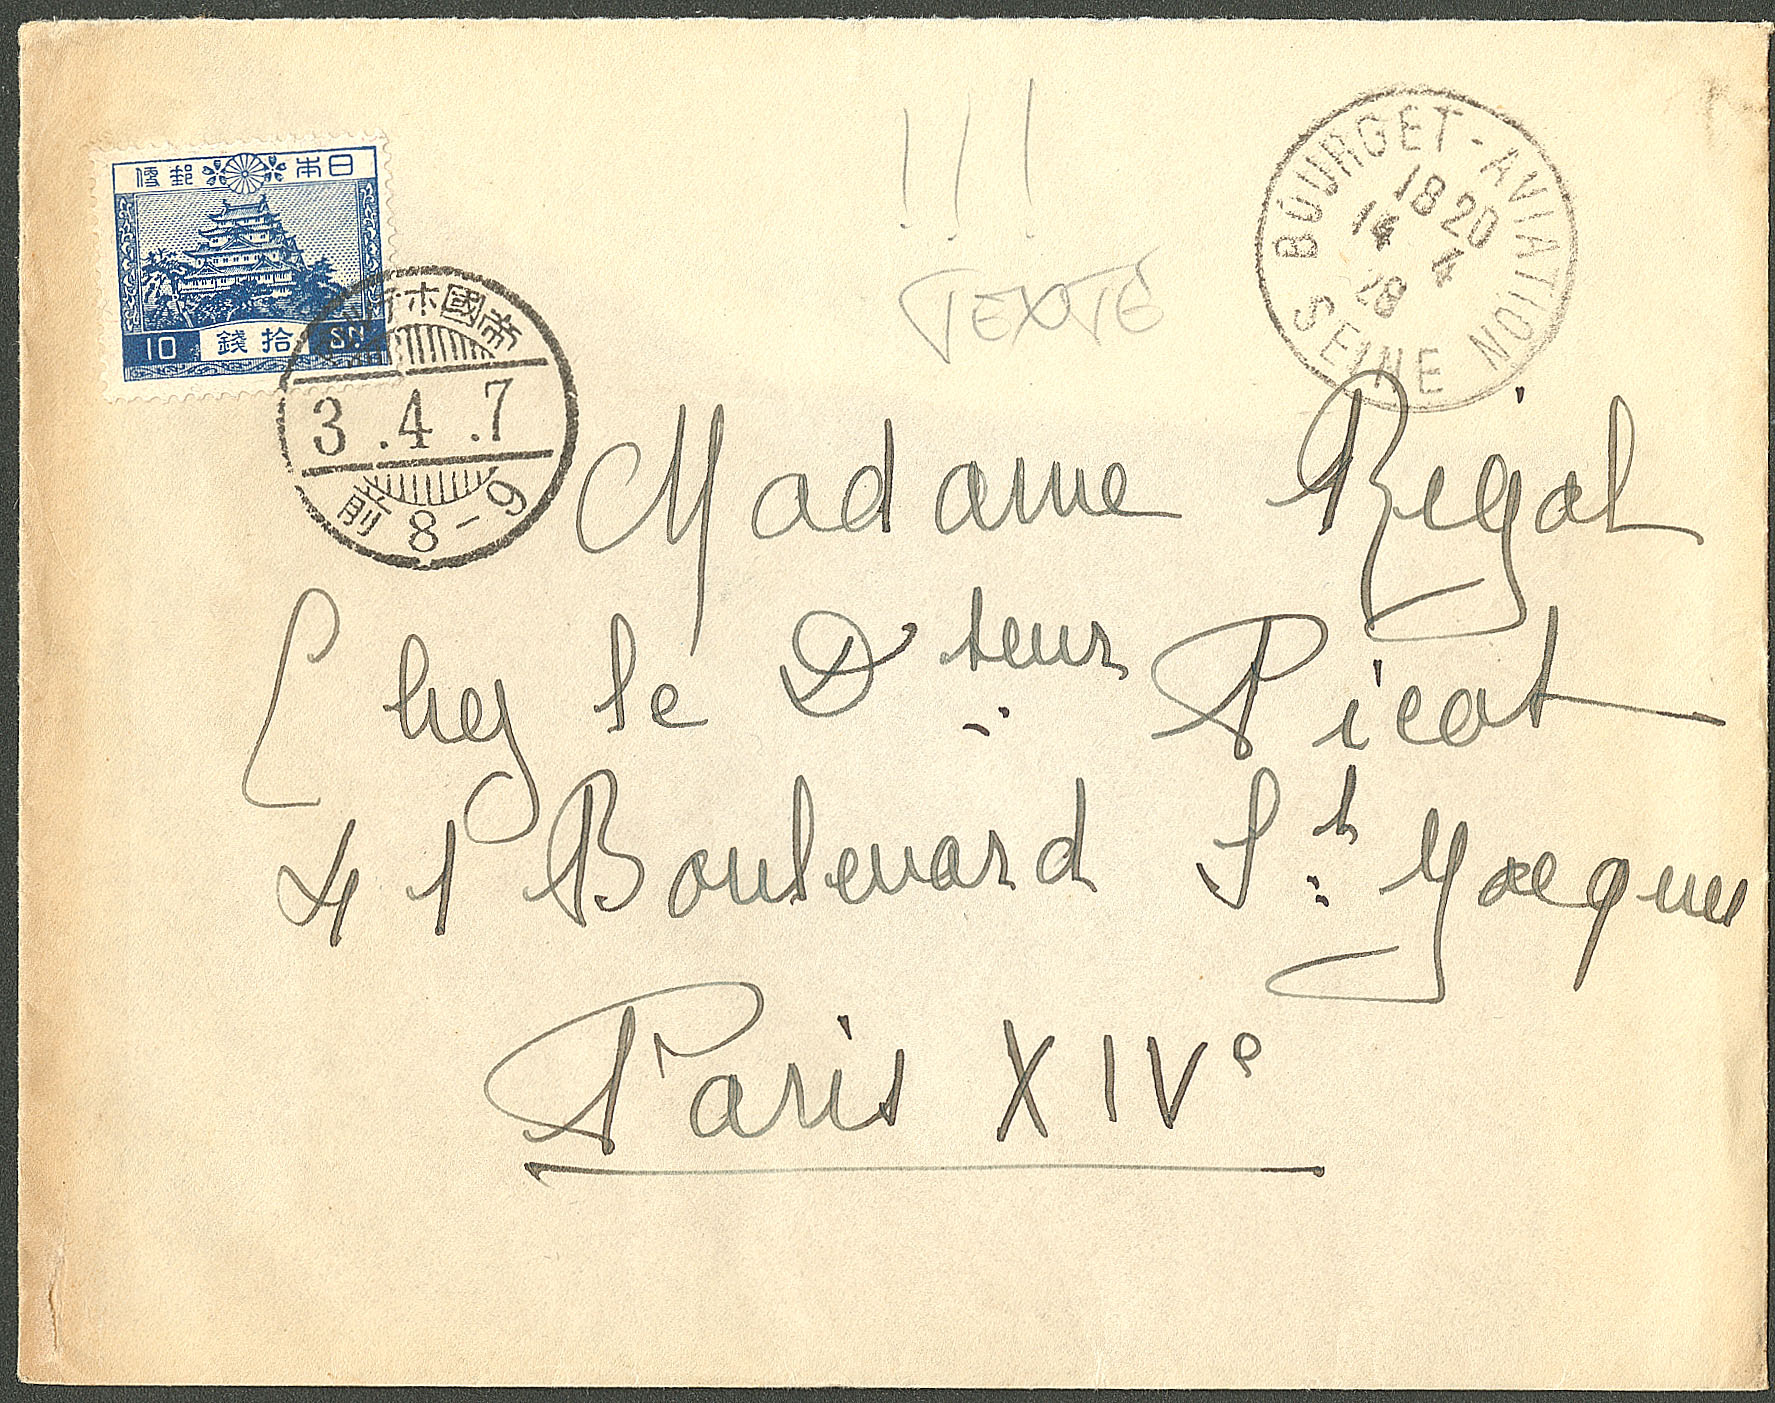 日本郵便
10 拾錢 SN.
帝國ホテル
3.4.7
前 8-9
!!!
TEXTE
BOURGET-AVIATION
18 20
14 4
28
SEINE
Madame Rigal
Chez le Dteur Picot
41 Boulevard St Jacques
Paris XIVe